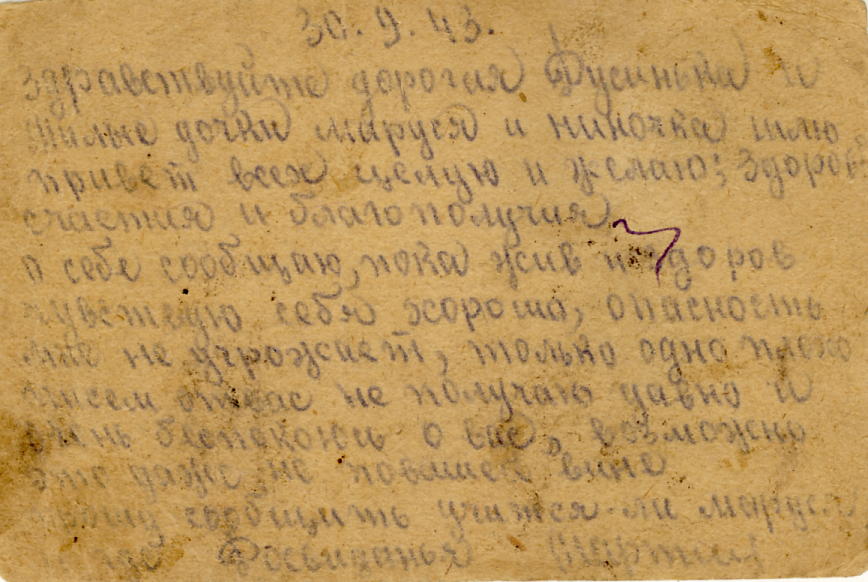 30. 9. 43.
Здравствуйте дорогая Дусинька и
милые дочки маруся и ниночка шлю
привет всех целую и желаю; здоров
счастия и благополучия
о себе сообщаю, пока жив и здоров
чувствую себя хорошо, опасность
мне не угрожает, только одно плохо
писем от вас не получаю давно и
очень беспокоюсь о вас, возможно
это даже не повашей вине
прошу сообщить учится-ли маруся
Досвиданья